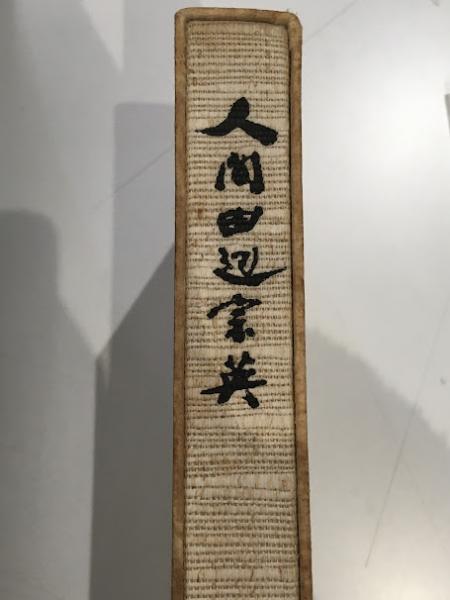 人間田辺宗英